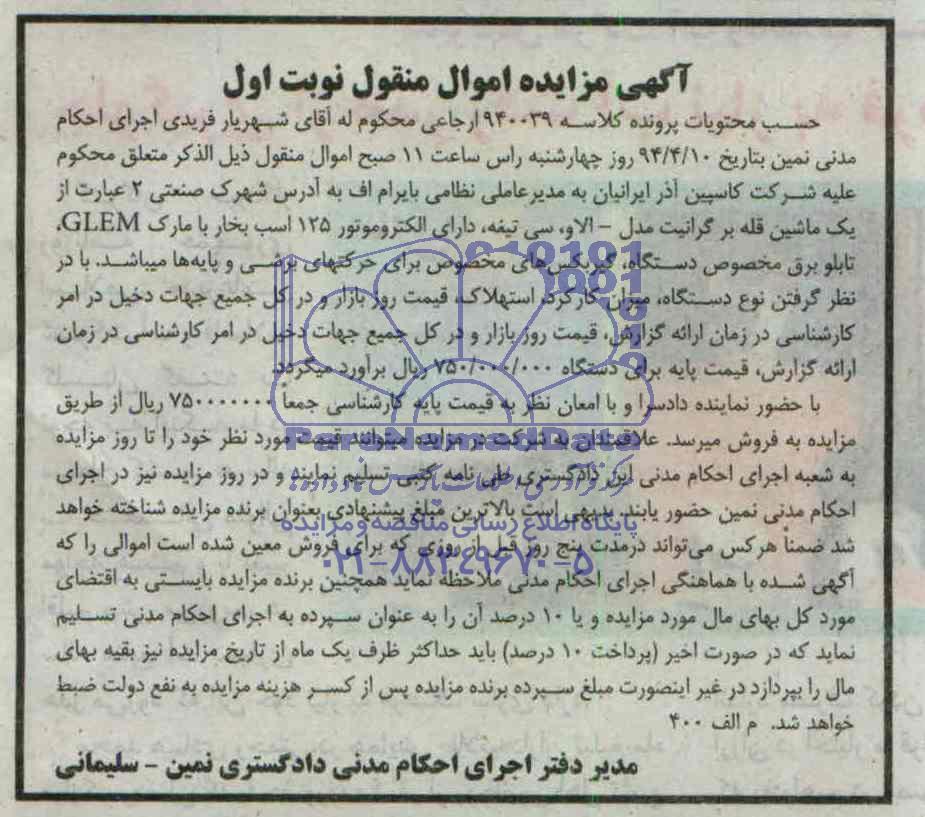 آگهی مزایده اموال منقول نوبت اول
حسب محتویات پرونده کلاسه ۹۴۰۰۳۹ ارجاعی محکوم له آقای شهریار فریدی اجرای احکام
مدنی نمین بتاریخ ۹۴/۴/۱۰ روز چهارشنبه راس ساعت ۱۱ صبح اموال منقول ذیل الذکر متعلق محکوم
علیه شرکت کاسپین آذر ایرانیان به مدیرعاملی نظامی بایرام اف به آدرس شهرک صنعتی ۲ عبارت از
یک ماشین قله بر گرانیت مدل - الاو، سی تیغه، دارای الکتروموتور ۱۲۵ اسب بخار با مارک GLEM،
تابلو برق مخصوص دستگاه، گیربکس‌های مخصوص برای حرکتهای برشی و پایه‌ها میباشد. با در
نظر گرفتن نوع دستگاه، میزان کارکرد، استهلاک، قیمت روز بازار و در کل جمیع جهات دخیل در امر
کارشناسی در زمان ارائه گزارش، قیمت روز بازار و در کل جمیع جهات دخیل در امر کارشناسی در زمان
ارائه گزارش، قیمت پایه برای دستگاه ۷۵۰/۰۰۰/۰۰۰ ریال برآورد میگردد.
با حضور نماینده دادسرا و با امعان نظر به قیمت پایه کارشناسی جمعاً ۷۵۰۰۰۰۰۰۰ ریال از طریق
مزایده به فروش میرسد. علاقمندان به شرکت در مزایده میتوانند قیمت مورد نظر خود را تا روز مزایده
به شعبه اجرای احکام مدنی این دادگستری طی نامه کتبی تسلیم نمایند و در روز مزایده نیز در اجرای
احکام مدنی نمین حضور یابند. بدیهی است بالاترین مبلغ پیشنهادی بعنوان برنده مزایده شناخته خواهد
شد ضمناً هرکس می‌تواند درمدت پنج روز قبل از روزی که برای فروش معین شده است اموالی را که
آگهی شده با هماهنگی اجرای احکام مدنی ملاحظه نماید همچنین برنده مزایده بایستی به اقتضای
مورد کل بهای مال مورد مزایده و یا ۱۰ درصد آن را به عنوان سپرده به اجرای احکام مدنی تسلیم
نماید که در صورت اخیر (پرداخت ۱۰ درصد) باید حداکثر ظرف یک ماه از تاریخ مزایده نیز بقیه بهای
مال را بپردازد در غیر اینصورت مبلغ سپرده برنده مزایده پس از کسر هزینه مزایده به نفع دولت ضبط
خواهد شد. م الف ۴۰۰
مدیر دفتر اجرای احکام مدنی دادگستری نمین - سلیمانی
ParaNamadData
پایگاه اطلاع رسانی مناقصه و مزایده
۰۲۱-۸۸۳۴۹۶۷۰-۵